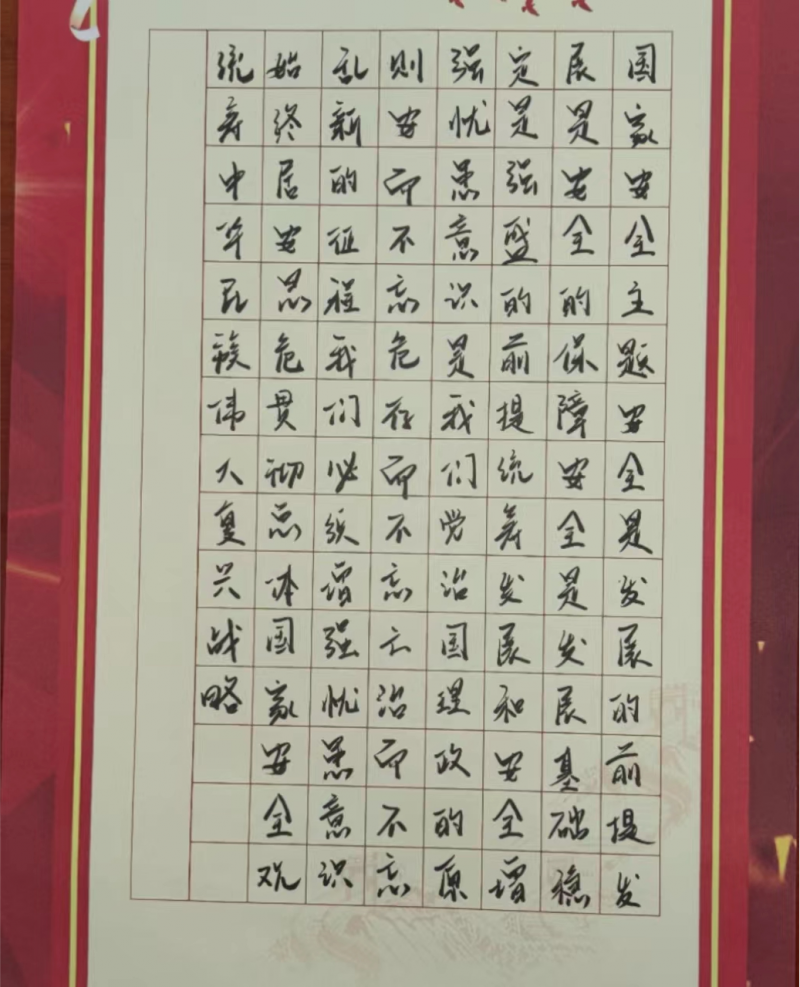 国家安全主题安全是发展的前提发
展是安全的保障安全是发展基础稳
定是强盛的前提统筹发展和安全增
强忧患意识是我们党治国理政的原
则安而不忘危存而不忘亡治而不忘
乱新的征程我们必须增强忧患意识
始终居安思危贯彻总体国家安全观
统筹中华民族伟大复兴战略